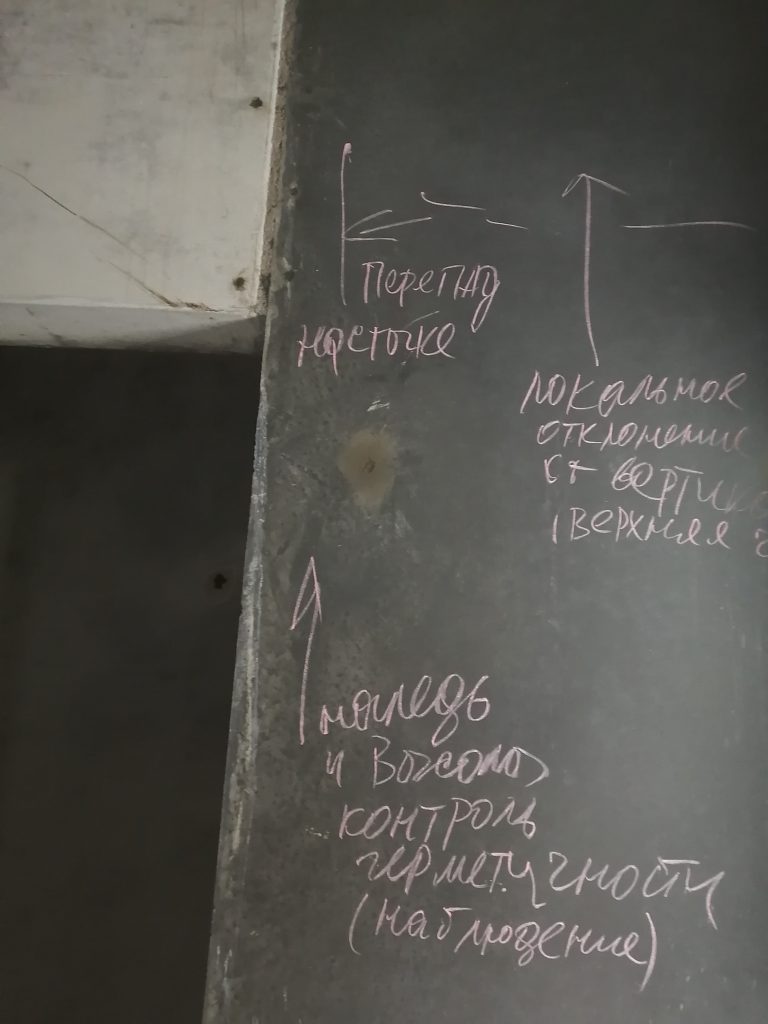 Перепад
на стыке
локальное
отклонение
от
верхняя
наледь
и высолы
контроль
герметичности
(наблюдение)